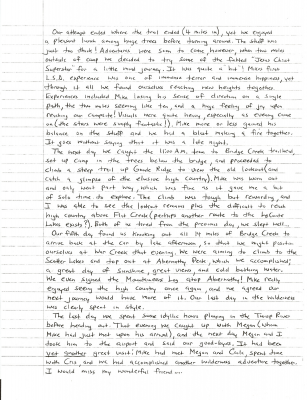 Our attempt ended where the trail ended (4 miles in), yet we enjoyed
a pleasant lunch among large trees before turning around. The stuff was
just too thick! Adventures were soon to come, however, when two miles
outside of camp we decided to try some of the fabled "Jesus Christ
Superstar" for a little mind journey. It was quite a hit! Mike's first
L.S.D. experience was one of immense terror and immense happiness, yet
through it all we found ourselves reaching new heights together.
Experiences included Mike losing his sense of direction on a single
path, the two miles seeming like ten, and a huge feeling of joy upon
reuniting our campsite! Visuals were quite heavy, especially as evening came
on (the others were simply fantastic). Mike more or less gained his
balance on the stuff and we had a blast making a fire together.
It goes without saying that it was a late night.
The next day we caught the 11:00 A.M. bus to Bridge Creek trailhead,
set up camp in the trees below the bridge, and proceeded to
climb a steep trail up Goode Ridge to view the old lookout (and
catch a glimpse of the elusive high country). Mike was worn out
and only went part way, which was fine as it gave me a bit
of solo time to explore. The climb was tough but rewarding, and
I was able to see the lookout remains plus the difficult to reach
high country above Flat Creek (perhaps another route to the
Lake exists?). Both of us tired from the previous day, we slept well.
Our fifth day found us hiking out all miles of Bridge Creek to
arrive back at the car by late afternoon, so that we might position
ourselves at War Creek that evening. We were aiming to climb to the
Scatter Lakes and tap out at Abernathy Peak, which we accomplished,
a great day of sunshine, great views and cold bathing waters.
We even signed the Mountaineers log atop Abernathy! Mike really
enjoyed seeing the high country once again and we agreed our
next journey would have more of it. Our last day in the wilderness
was clearly spent in style.
The last day we spent some idyllic hours playing in the Twisp River
before heading out. That evening we caught up with Megan (whom
Mike had just met upon his arrival), and the next day Megan and I
took him to the airport and said our good-byes. It had been
yet another great visit: Mike had met Megan and Carla, spent time
with Cris, and we had accomplished another wilderness adventure together.
I would miss my wonderful friend...